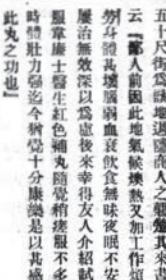 五十尺街爲該地通商人之
云『鄙人前因此地氣候燥熱又加工作煩
勞身體甚壞腦弱血衰飲食無味夜眠不安
屢治無效深以爲慮後來幸得友人介紹試
服韋廉士醫生紅色補丸隨覺稍痊服不多
時體壯力强迄今猶覺十分康樂是以甚感
此丸之功也』